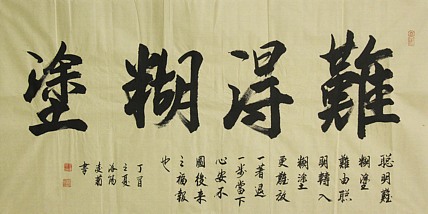 難得糊塗
聰明難
糊塗
難由聰
明轉入
糊塗
更難放
一著退
一步當下
心安不
圖後来
之福報
也
丁酉
之夏
洛陽
凌菊
書